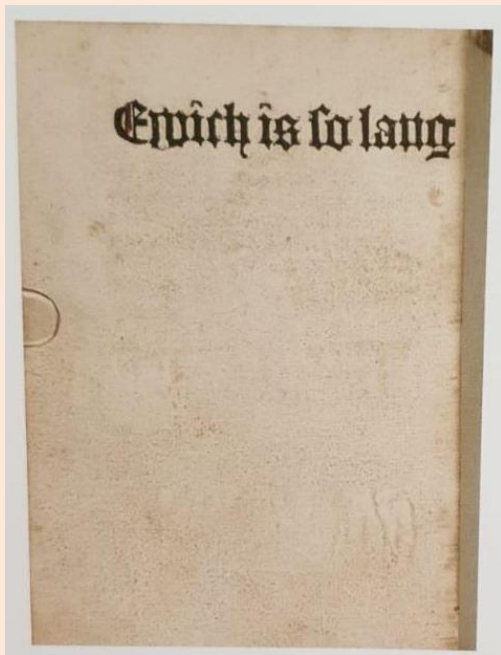 Ewich is so lang